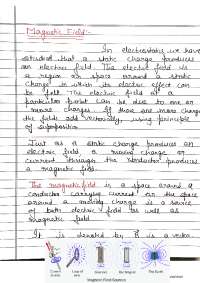 Magnetic Field:-
In electrostatics we have
studied that a static charge produces
an electric field. The electric field is
a region or space around a static
charge in which its electric effect can
be felt. The electric field at a
particular point can be due to one or
more charges. If there are more charges
the fields add vectorially, using principle
of superposition
Just as a static charge produces an
electric field a moving charge or
current through the conductor produces
a magnetic field.
The magnetic field is a space around a
conductor carrying current or the space
around a moving charge is a source
of both electric field as well as
magnetic field
It is denoted by B is a vector
Loop of
Solenoid
Bar Magnet
The Earth
Magnetic Field Sources